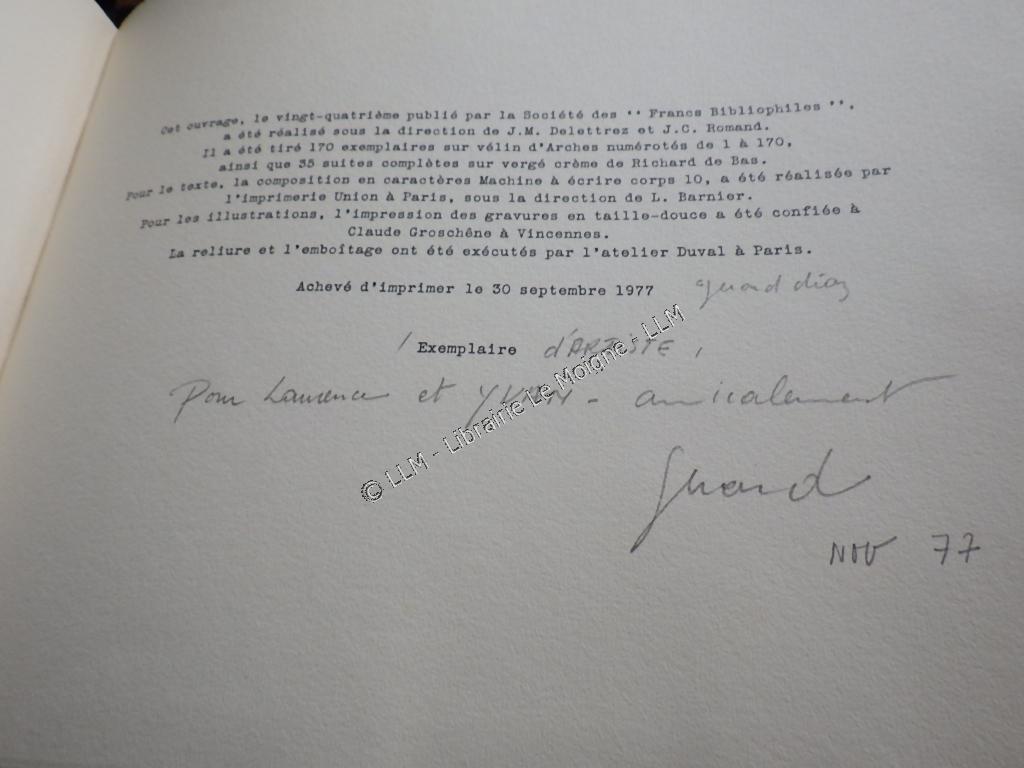 Cet ouvrage, le vingt-quatrième publié par la Société des '' Francs Bibliophiles '',
a été réalisé sous la direction de J.M. Delettrez et J.C. Romand.
Il a été tiré 170 exemplaires sur vélin d'Arches numérotés de 1 à 170,
ainsi que 35 suites complètes sur vergé crème de Richard de Bas.
Pour le texte, la composition en caractères Machine à écrire corps 10, a été réalisée par
l'imprimerie Union à Paris, sous la direction de L. Barnier.
Pour les illustrations, l'impression des gravures en taille-douce a été confiée à
Claude Groschêne à Vincennes.
La reliure et l'emboîtage ont été exécutés par l'atelier Duval à Paris.
Achevé d'imprimer le 30 septembre 1977 gérard diaz
Exemplaire d'ARTISTE,
Pour Laurence et - amicalement
Gérard
NOV 77
© LLM - Librairie Le Moigne - LLM